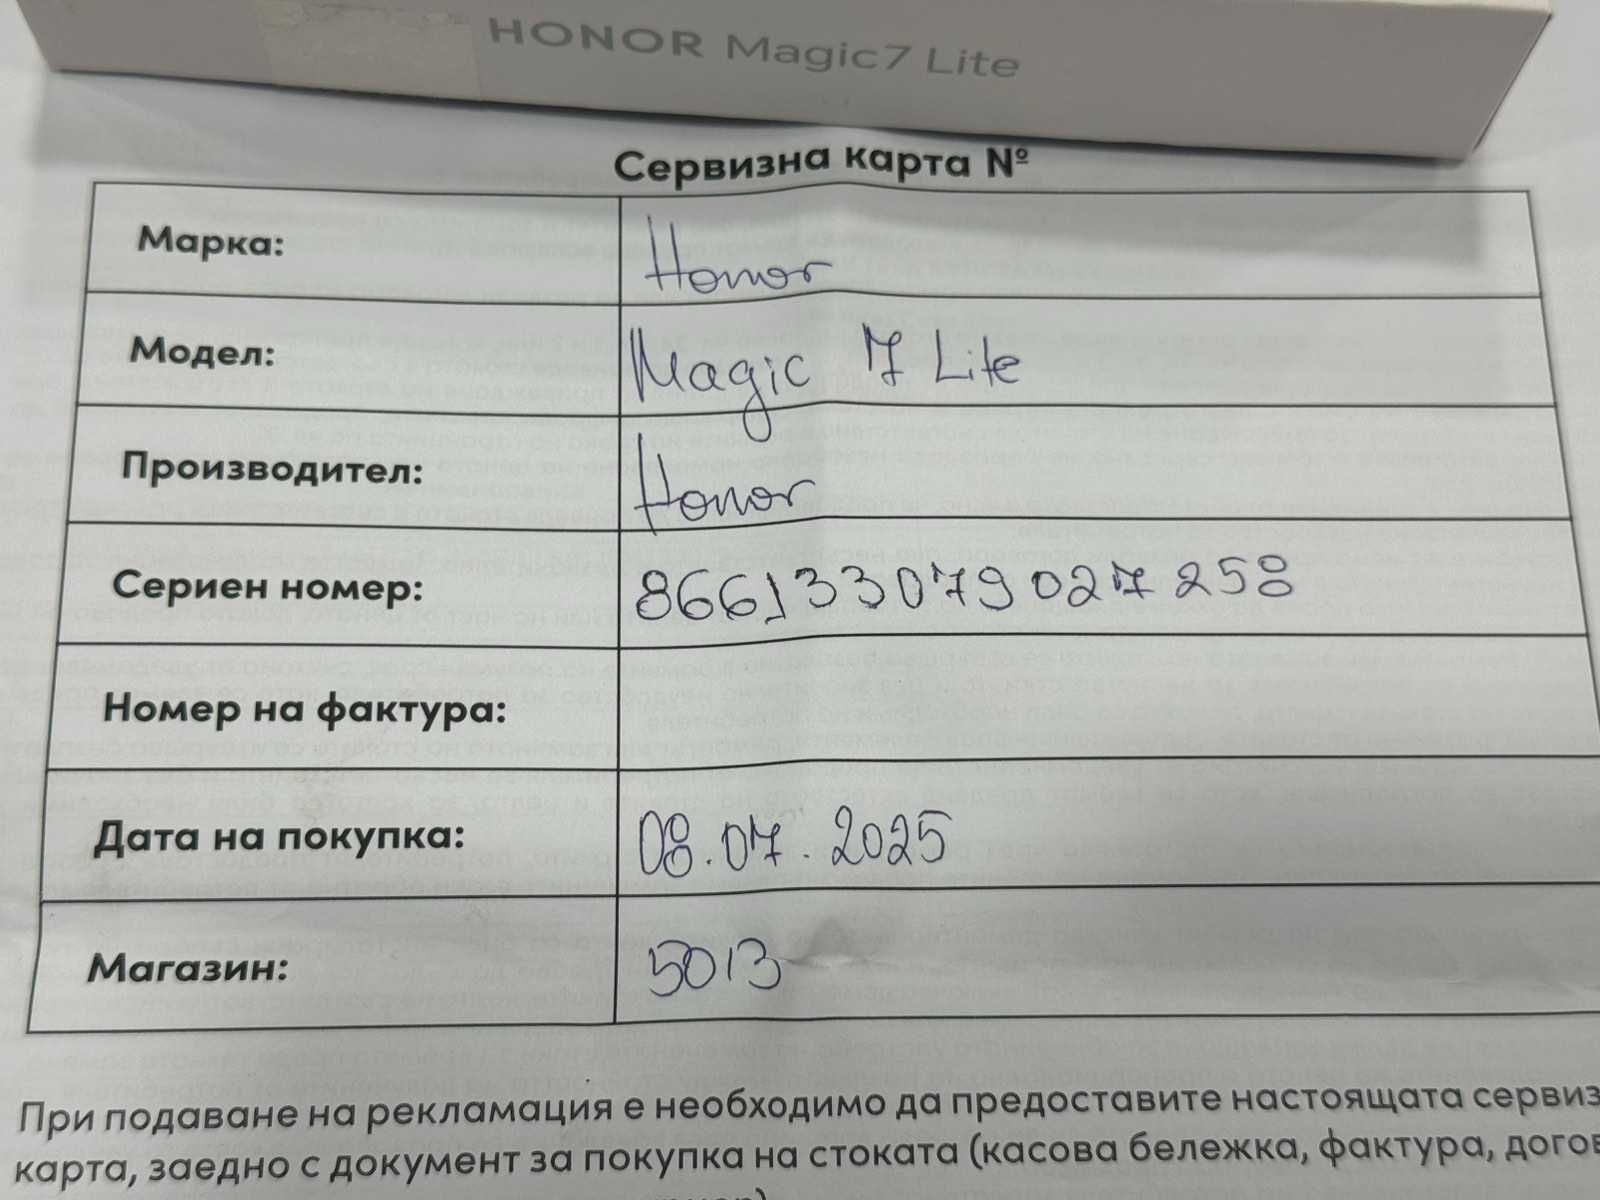 HONOR Magic7 Lite
Сервизна карта №
Марка: Honor
Модел: Magic 7 Lite
Производител: Honor
Сериен номер: 866133079027258
Номер на фактура:
Дата на покупка: 08.07.2025
Магазин: 5013
При подаване на рекламация е необходимо да предоставите настоящата сервиз
карта, заедно с документ за покупка на стоката (касова бележка, фактура, догов